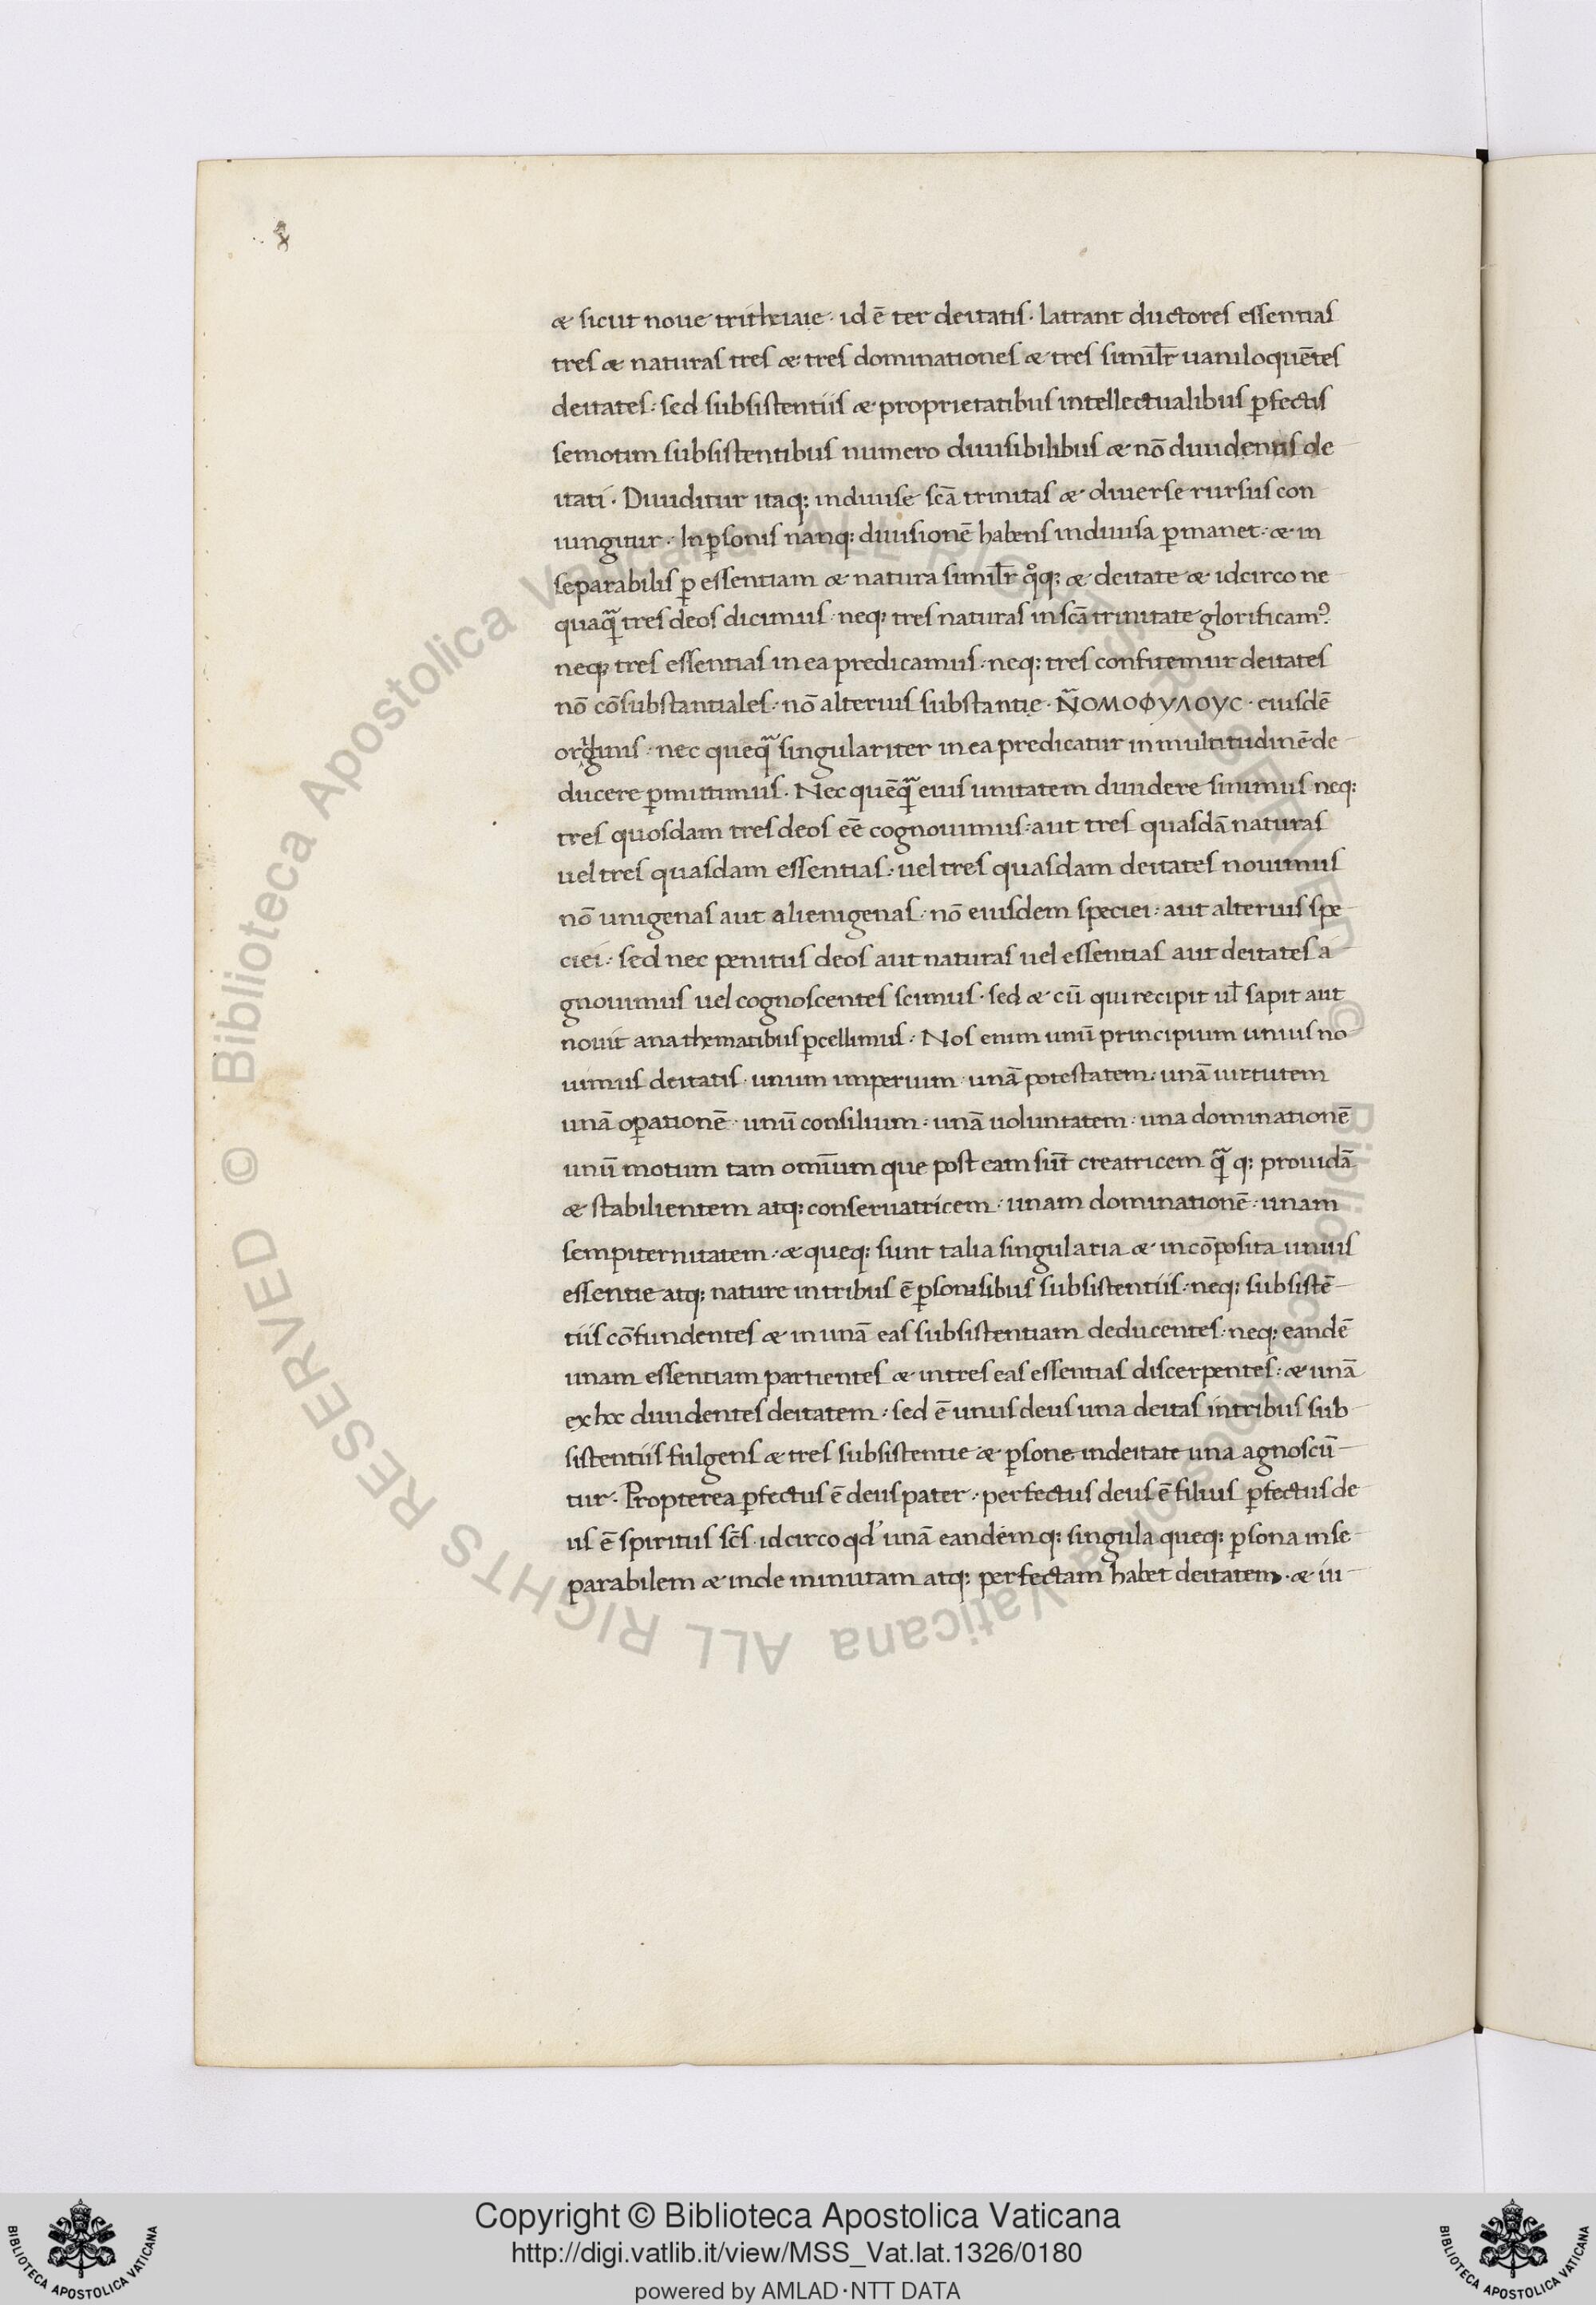 æ sicut noue tritheiaie · id ē ter deitatis · latrant ductores essentias
tres æ naturas tres æ tres dominationes æ tres simil̄r uaniloquētes
deitates : sed subsistentiis æ proprietatibus intellectualibus ꝑfectis
semotim subsistentibus numero diuisibilibus æ nō diuidentis de
itati · Diuiditur itaq: indiuise sc̄a trinitas æ diuerse rursus con
iungitur · In ꝑsonis nanq: diuisionē habens indiuisa ꝑmanet · æ in
separabilis ꝑ essentiam æ natura simil̄r qͦq: æ deitate æ idcirco ne
quaqᷓ tres deos dicimus · neq: tres naturas in sc̄a trinitate glorificamꝰ
neq: tres essentias in ea predicamus · neq: tres confitemur deitates
nō cōsubstantiales · nō alterius substantie · ÑOMOΦYΛOYC · eiusdē
originis · nec quēqᷓ singulariter in ea predicatur in multitudinē de
ducere ꝑmittimus · Nec quēqᷓ eius unitatem diuidere sinimus neq:
tres quosdam tres deos eē cognouimus : aut tres quasdā naturas
uel tres quasdam essentias : uel tres quasdam deitates nouimus
nō unigenas aut alienigenas · nō eiusdem speciei : aut alterius spe
ciei : sed nec penitus deos aut naturas uel essentias aut deitates a
gnouimus uel cognoscentes scimus · sed æ cū qui recipit ul̄ sapit aut
nouit anathematibus ꝑcellimus : Nos enim unū principium unius no
uimus deitatis · unum imperium · unā potestatem · unā uirtutem
unā oꝑationē · unū consilium · unā uoluntatem · una dominationē
unū motum tam omīum que post eam sūt creatricem qᷓ q: prouidā
æ stabilientem atq: conseruatricem · unam dominationē · unam
sempiternitatem · æ queq: sunt talia singularia æ incōposita unius
essentie atq: nature in tribus ē ꝑsonisibus subsistentiis · neq: subsistē
tiis cōfundentes æ in unā eas subsistentiam deducentes · neq: eandē
unam essentiam partientes æ in tres eas essentias discerpentes : æ unā
ex hoc diuidentes deitatem : sed ē unus deus una deitas in tribus sub
sistentiis fulgens æ tres subsistentie æ ꝑsone in deitate una agnoscū
tur · Propterea ꝑfectus ē deus pater · perfectus deus ē filius ꝑfectus de
us ē spiritus sc̄s · idcirco qd' unā eandemq: singula queq: ꝑsona inse
parabilem æ inde minutam atq: perfectam habet deitatem · æ iu
© Biblioteca Apostolica Vaticana ALL RIGHTS RESERVED © Biblioteca Apostolica Vaticana ALL RIGHTS RESERVED
Copyright © Biblioteca Apostolica Vaticana
http://digi.vatlib.it/view/MSS_Vat.lat.1326/0180
powered by AMLAD·NTT DATA
BIBLIOTECA APOSTOLICA VATICANA
BIBLIOTECA APOSTOLICA VATICANA